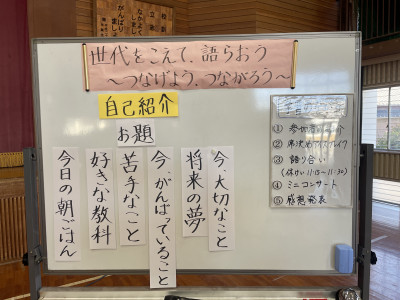 世代をこえて、語らおう
～つなげよう、つながろう～
自己紹介
お題
今、大切なこと
将来の夢
今、がんばっていること
苦手なこと
好きな教科
今日の朝ごはん
②席決めアイスブレイク
③語り合い
(休けい 11:15～11:30)
④ミニコンサート
⑤感想発表